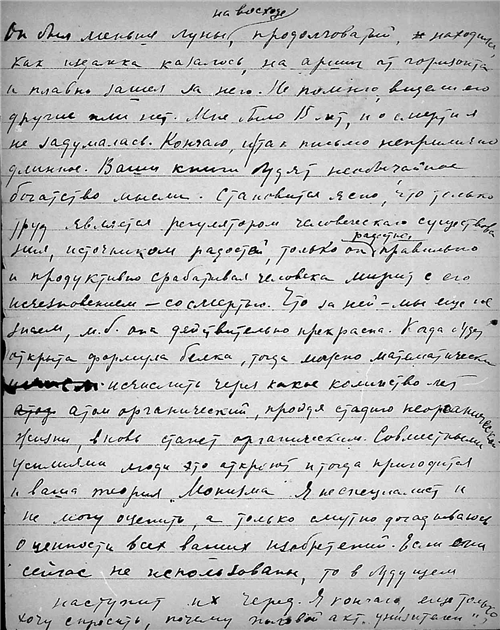 на восходе
Он был меньше луны, продолговатый, находился,
как издалка казалось, на аршин от горизонта
и плавно зашел за него. Не помню, видели его
другие или нет. Мне было 15 лет, и о смерти я
не задумалась. Кончаю, и так письмо неприлично
длинное. Ваши книги будят необычайное
богатство мысли. Становится ясно, что только
труд является регулятором человеческого существова
ния, источником радостей, только он правильно
радостно
и продуктивно срабатывая человека мирит с его
исчезновением – со смертью. Что за ней – мы еще не
знаем, м.б. она действительно прекрасна. Когда будет
открыта формула белка, тогда можно математически
исчислить через какое количество лет
атом органический, пройдя стадию неорганической
жизни, вновь станет органическим. Совместными
усилиями люди это откроют и тогда пригодится
и ваша теория "Монизма". Я не специалист и
не могу оценить, а только смутно догадываюсь
о ценности всех ваших изобретений. Если они
сейчас не использованы, то в будущем
наступит их черед. Я кончаю, еще только
хочу спросить, почему половой акт "унизителен"?